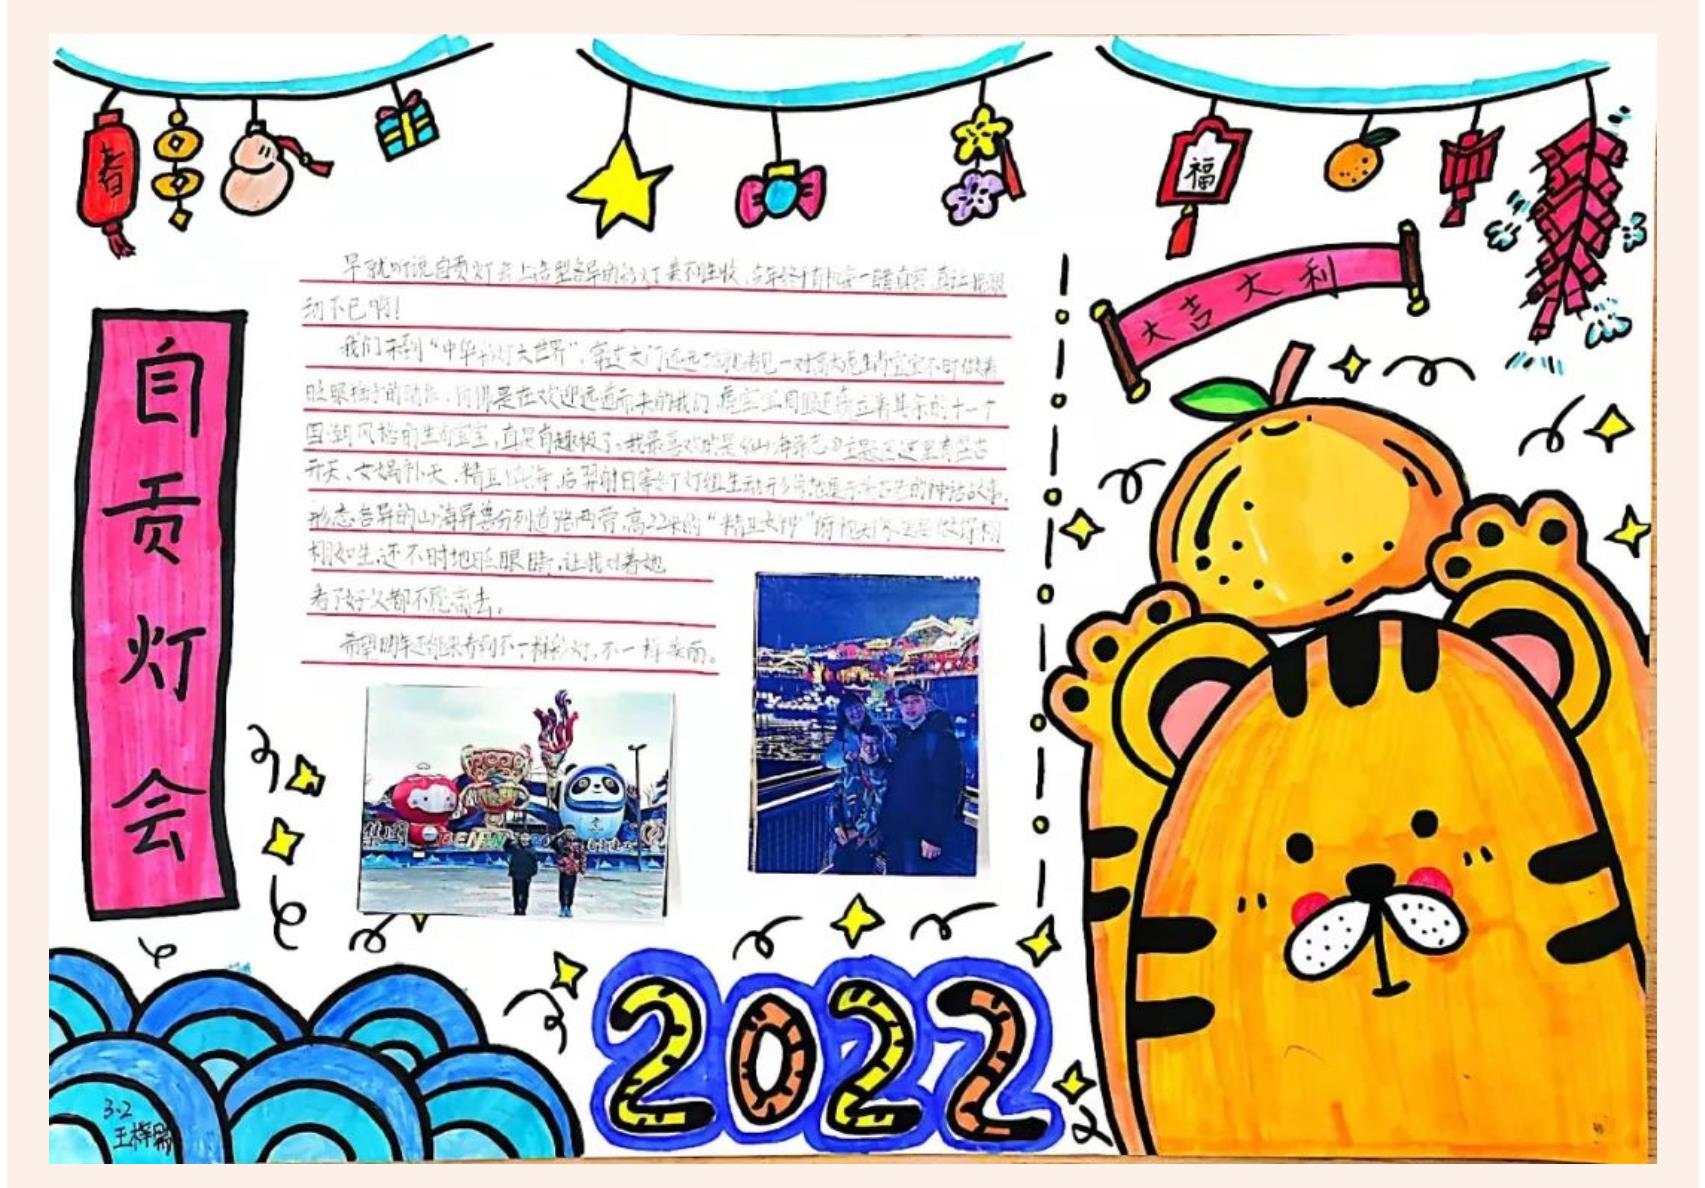 春
福
大吉大利
自贡灯会
早就听说自贡灯会上造型各异的彩灯美不胜收,今年终于有机会一睹真容,真让我激
动不已啊!
我们来到“中华彩灯大世界”,穿过大门远远地就看见一对高大虎生肖宝宝不时做着
眨眼招手的动作,仿佛是在欢迎远道而来的我们,虎宝宝周围还矗立着其余的十一个
国潮风格的生肖宝宝,真是有趣极了。我最喜欢的是《山海 主题区这里有盘古
开天、女娲补天、精卫填海、后羿射日等多个灯组生动形象地展示 古老的神话故事,
形态各异的山海异兽分列道路两旁,高22米的“精卫女神” 更是做得栩
栩如生,还不时地眨眼睛,让我对着她
看了好久都不愿离去。
希望明年还能来看到不一样彩灯,不一样美丽。
2022
3.2
王梓